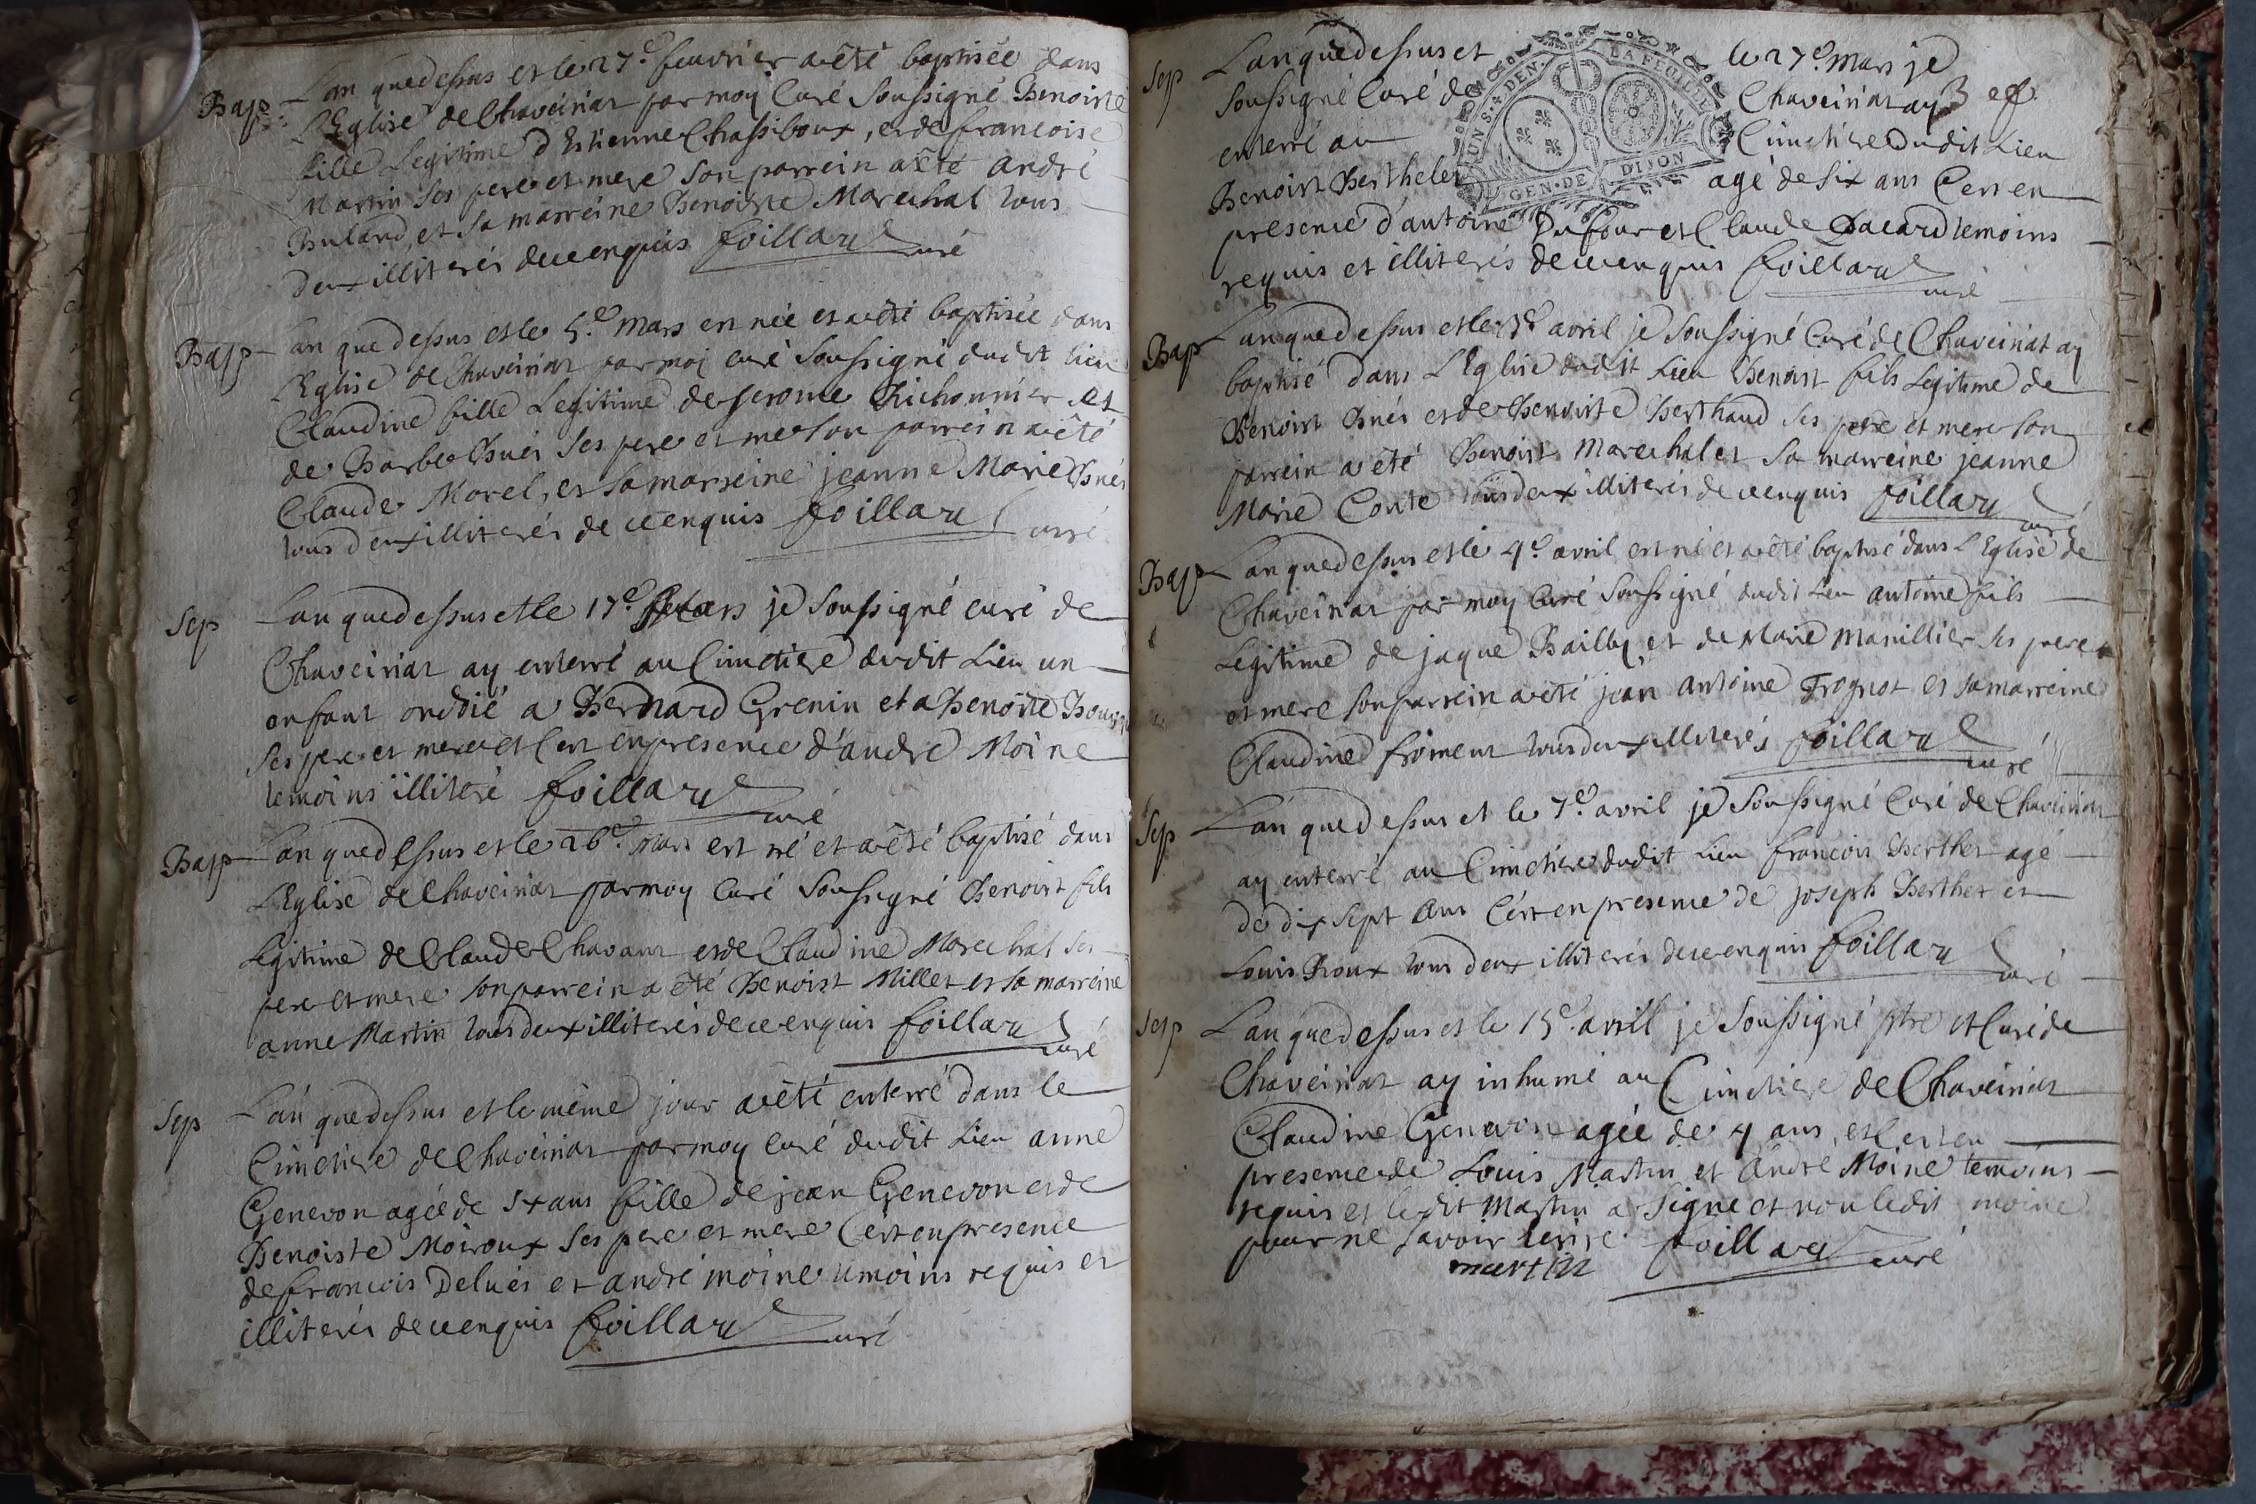 Bap
L'an que dessus et le 27e feuvrier a été baptisée dans
L'Eglise de Chaveiriat par moy Curé Soussigné Benoiste
fille Legitime d'Estienne Chassiboux, et de francoise
Martin Ses pere et mere Son parrein a été andré
Buland, et Sa marreine Benoiste Marechal tous
deux illiterés de ce enquis foillard curé
Bap
L'an que dessus et le 5e Mars est née et a été baptisée dans
L'Eglise de Chaveiriat par moi curé Soussigné dudit Lieu
Claudine fille Legitime de Jerome Richonnier et
de Barbe Ses pere et mere Son parrein a été
Claude Morel, et Sa marreine jeanne Marie
tous deux illiterés de ce enquis foillard curé
Sep
L'an que dessus et le 17e Mars je Soussigné curé de
Chaveiriat ay enterré au Cimetiere dudit Lieu un
enfant ondoié a Bernard Grenin et a Benoite
Ses pere et mere et C'est en presence d'andré Moine
temoins illiteré foillard curé
Bap
L'an que dessus et le 26e Mars est né et a été baptisé dans
L'Eglise de Chaveiriat par moy Curé Soussigné Benoist fils
Legitime de Claude Chavant et de Claudine Marechal Ses
pere et mere Son parrein a été Benoist Millet et Sa marreine
anne Martin tous deux illiterés de ce enquis foillard curé
Sep
L'an que dessus et le même jour a été enterré dans le
Cimetiere de Chaveiriat par moy Curé dudit Lieu anne
Genevon agée de Sx ans fille de jean Genevon et de
Benoiste Moiroux Ses pere et mere C'est en presence
de francois Delués et andré moine temoins requis et
illiterés de ce enquis foillard curé
Sep
L'an que dessus et le 27e Mars je
Soussigné Curé de Chaveiriat ay
enterré au Cimetiere dudit Lieu
Benoist Berthelet agé de Six ans C'est en
presence d'antoine Dufour et Claude Dacard temoins
requis et illiterés de ce enquis foillard curé
UN S. 4 DEN. LA FEUILLE
GEN. DE DIJON
Bap
L'an que dessus et le avril je Soussigné Curé de Chaveiriat ay
baptisé dans L'Eglise dudit Lieu Benoist fils Legitime de
Benoist et de Benoiste Berthaud Ses pere et mere Son
parrein a été Benoist Marechal et Sa marreine jeanne
Marie Conte tous deux illiterés de ce enquis foillard curé
Bap
L'an que dessus et le 4e avril est né et a été baptisé dans L'Eglise de
Chaveiriat par moy Curé Soussigné dudit Lieu antoine fils
Legitime de jaque Bailly et de Marie Manillier Ses pere
et mere Son parrein a été jean antoine Frognot et Sa marreine
Claudine froment tous deux illiterés foillard curé
Sep
L'an que dessus et le 7e avril je Soussigné Curé de Chaveiriat
ay enterré au Cimetiere dudit Lieu francois Berthet agé
de dix Sept ans C'est en presence de joseph Berthet et
Louis Roux tous deux illiterés de ce enquis foillard curé
Sep
L'an que dessus et le 15e avril je Soussigné ptre et Curé de
Chaveiriat ay inhumé au Cimetiere de Chaveiriat
Claudine Genevon agée de 4 ans, et C'est en
presence de Louis Martin et andré Moine temoins
requis et ledit Martin a Signé et non ledit moine
pour ne Savoir ecrire. foillard curé
martin